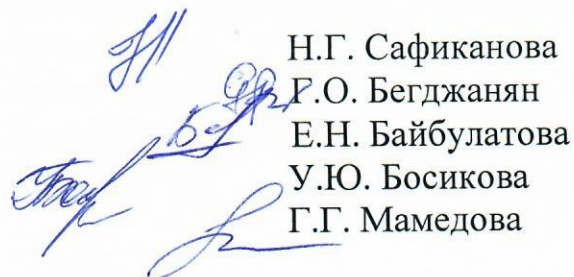 Н.Г. Сафиканова
Г.О. Бегджанян
Е.Н. Байбулатова
У.Ю. Босикова
Г.Г. Мамедова